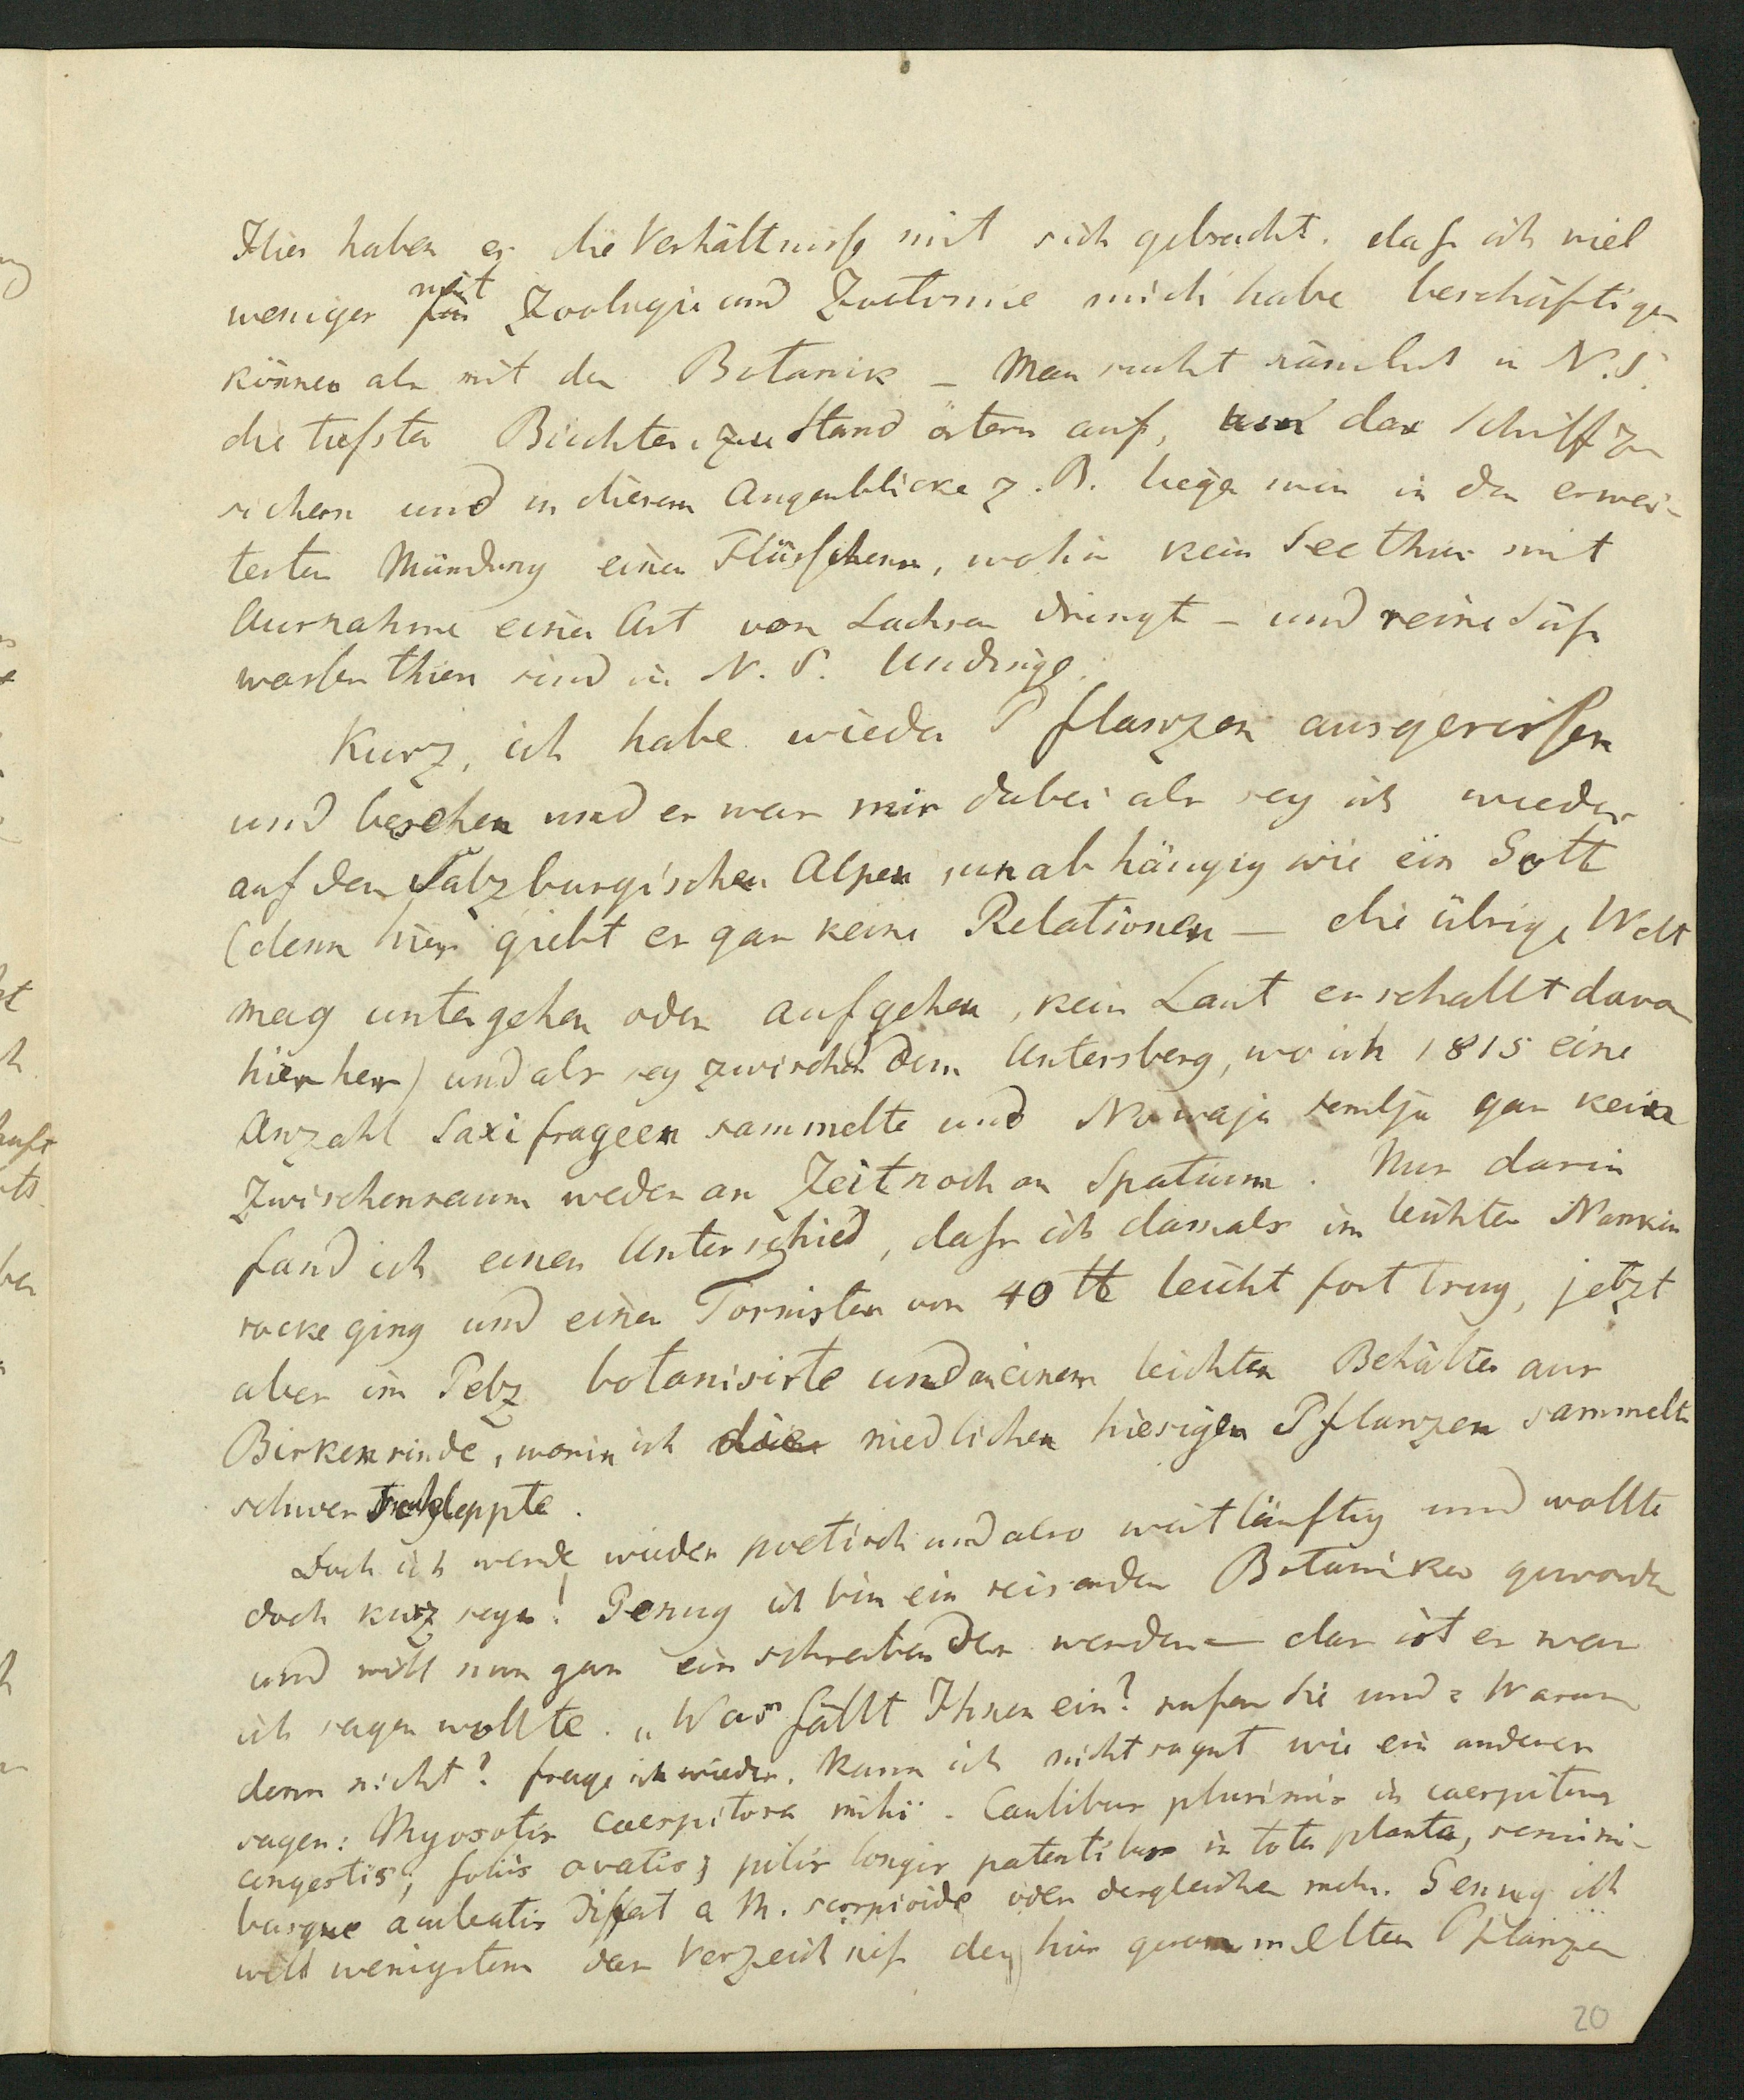 Hier haben es die Verhältnisse mit sich gebracht, dass ich viel
weniger mit Zoologie und Zootomie mich habe beschäftigen
können als mit der Botanik – Man sucht nämlich in N.S.
die tiefsten Buchten zu Standörtern auf, um das Schiff zu
sichern und in diesem Augenblicke z. B. liegen wir in der erwei-
terten Mündung eines Flüsschens, wohin kein Seethier mit
Ausnahme einer Art von Lachsen dringt – und reine Süss
wasserthiere sind in N. S. Undinge.
Kurz, ich habe wieder Pflanzen ausgerissen
und besehen und es war mir dabei als sey ich wieder
auf den Salzburgischen Alpen, unabhängig wie ein Gott
(denn hier giebt es gar keine Relationen — die übrige Welt
mag untergehen oder aufgehen, kein Laut erschallt davon
hierher) und als sey zwischen dem Untersberg, wo ich 1815 eine
Anzahl Saxifrageen sammelte und Nowaja Semlja gar kein
Zwischenraum weder an Zeit noch an Spatium. Nur darin
fand ich einen Unterschied, dass ich damals im leichten Nankin
rocke ging und einen Tornister von 40 ℔ leicht fort trug, jetzt
aber im Pelz botanisirte und an einem leichten Behälter aus
Birkenrinde, worin ich die niedlichen hiesigen Pflanzen sammelte
schwer schleppte.
Doch ich werde wieder poetisch und also weitläuftig und wollte
doch kurz seyn! Genug ich bin ein reisender Botaniker geworden
und will nun gar ein schreibender werden — das ist es was
ich sagen wollte. „Was fällt Ihnen ein? rufen Sie und: Warum
denn nicht? frage ich wieder. Kann ich nicht so gut wie ein anderer
sagen: Myosotis caespitosa mihi. Caulibus plurimis in caespitem
congestis; foliis ovatis; pilis longis patentibus in tota planta, semini-
busque aculeatis differt a M. scorpioide oder dergleichen mehr. Genug ich
will wenigstens das Verzeichniss der hier gesammelten Pflanzen
20